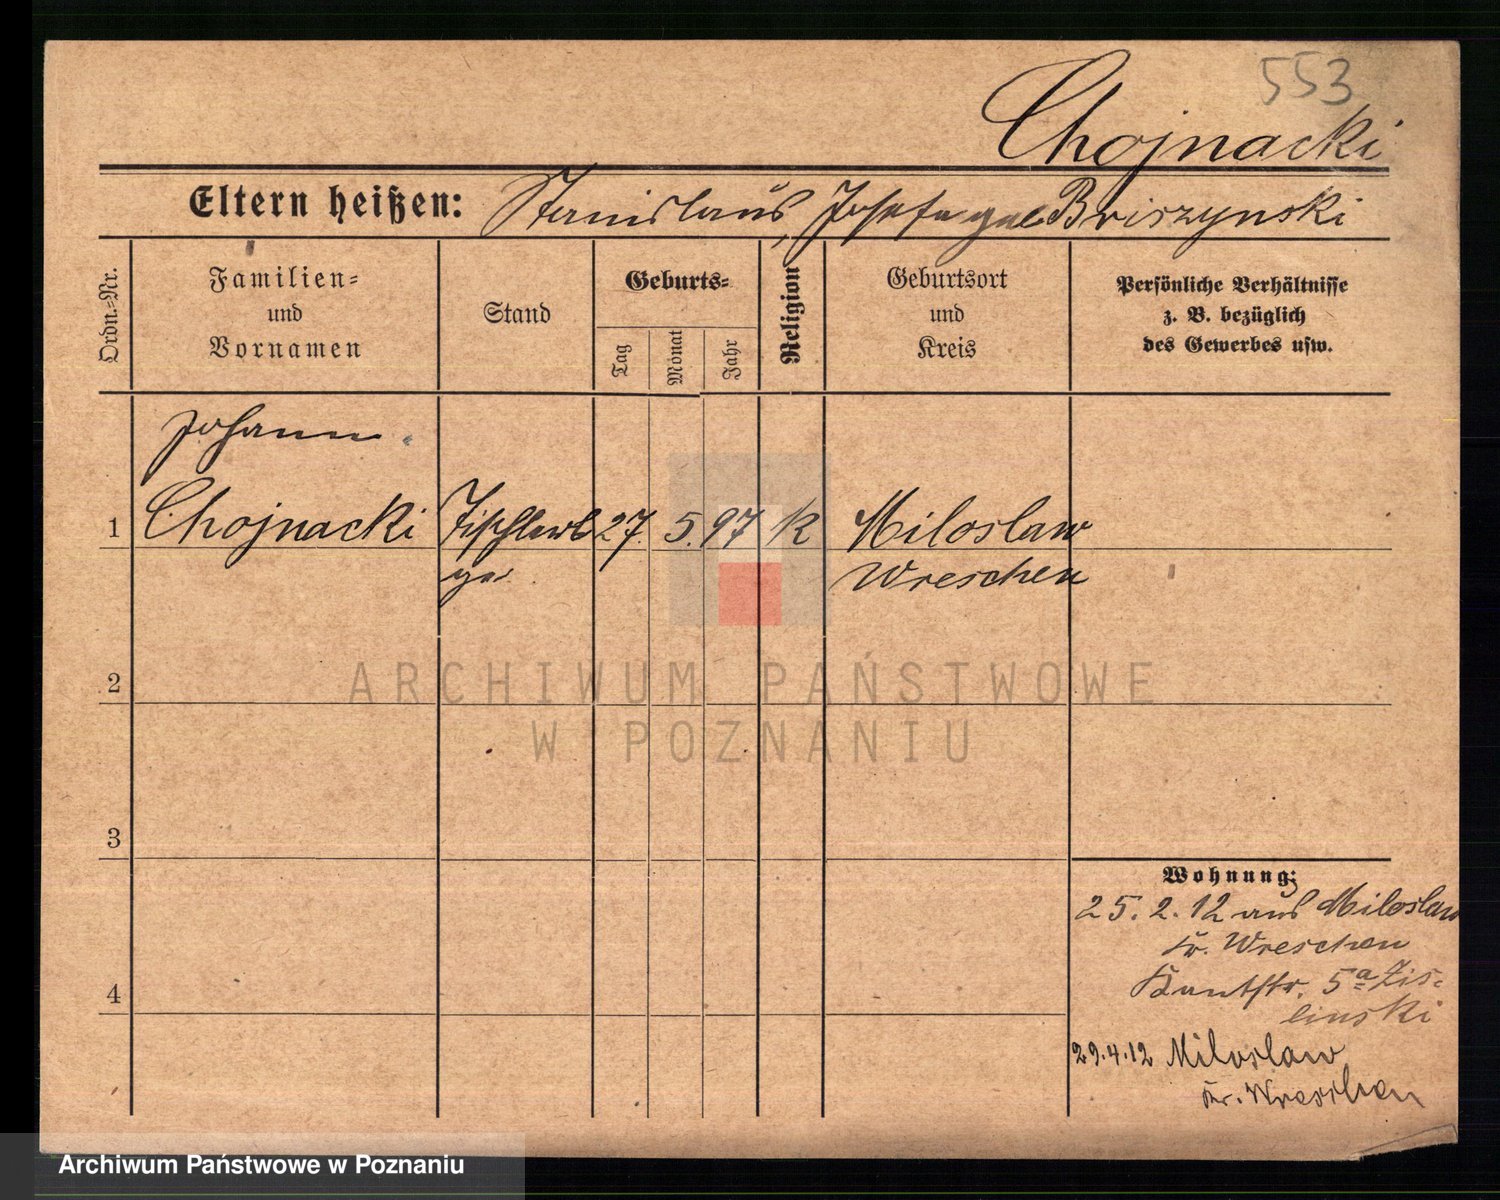 553
Chojnacki
Eltern heißen: Stanislaus, Josefa geb Briszynski
Ordn.-Nr.
Familien-
und
Vornamen
Stand
Geburts-
Tag
Monat
Jahr
Religion
Geburtsort
und
Kreis
Persönliche Verhältnisse
z. B. bezüglich
des Gewerbes usw.
Johann
1 Chojnacki 27. 5. 97 K Miloslaw
Wreschen
2
3
4
Wohnung:
25. 2. 12 aus Miloslaw
Kr. Wreschen
Kantstr. 5a Zis-
linski
29.4.12 Miloslaw
Kr. Wreschen
ARCHIWUM PAŃSTWOWE
W POZNANIU
Archiwum Państwowe w Poznaniu